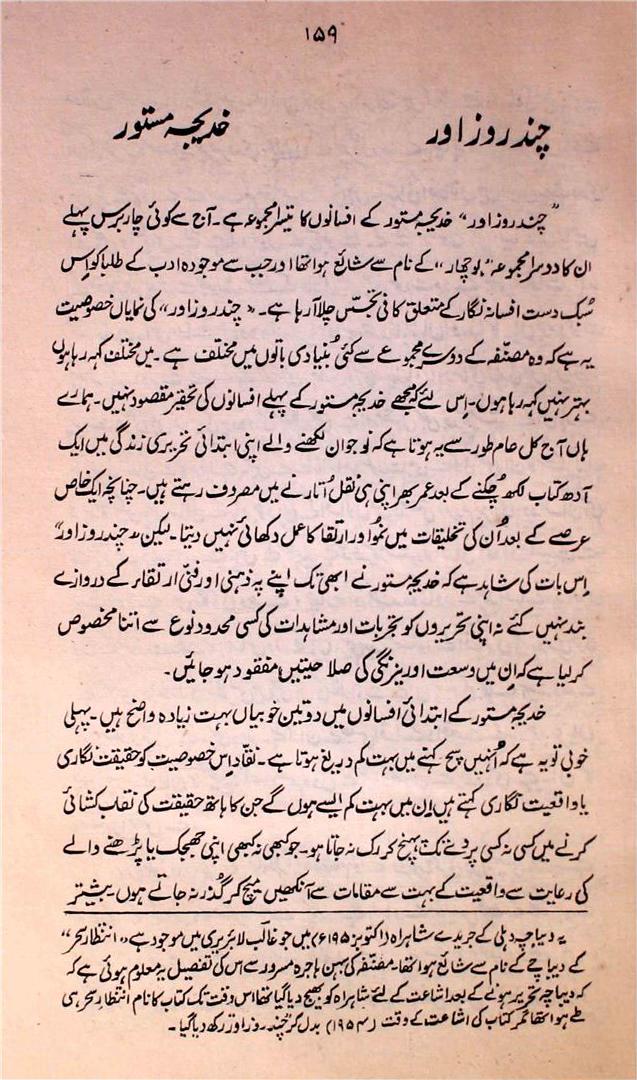 ۱۵۹
چند روز اور خدیجہ مستور
"چند روز اور" خدیجہ مستور کے افسانوں کا تیسرا مجموعہ ہے۔ آج سے کوئی چار برس پہلے
ان کا دوسرا مجموعہ "بوچھار" کے نام سے شائع ہوا تھا اور جب سے موجودہ ادب کے طلبا کو اِس
سُبک دست افسانہ نگار کے متعلق کافی تجسّس چلا آ رہا ہے۔ "چند روز اور" کی نمایاں خصوصیت
یہ ہے کہ وہ مصنّفہ کے دوسرے مجموعے سے کئی بُنیادی باتوں میں مختلف ہے۔ میں مختلف کہہ رہا ہوں
بہتر نہیں کہہ رہا ہوں۔ اِس لئے کہ مجھے خدیجہ مستور کے پہلے افسانوں کی تحقیر مقصود نہیں۔ ہمارے
ہاں آج کل عام طور سے یہ ہوتا ہے کہ نوجوان لکھنے والے اپنی ابتدائی تحریری زندگی میں ایک
آدھ کتاب لکھ چُکنے کے بعد عمر بھر اپنی ہی نقل اُتارنے میں مصروف رہتے ہیں۔ چنانچہ ایک خاص
عرصے کے بعد اُن کی تخلیقات میں نمُو اور ارتقا کا عمل دکھائی نہیں دیتا۔ لیکن "چند روز اور"
اِس بات کی شاہد ہے کہ خدیجہ مستور نے ابھی تک اپنے پہ ذہنی اور فنّی ارتقاء کے دروازے
بند نہیں کئے نہ اپنی تحریروں کو تجربات اور مشاہدات کی کسی محدود نوع سے اتنا مخصوص
کر لیا ہے کہ اِن میں وسعت اور نیرنگی کی صلاحیتیں مفقود ہو جائیں۔
خدیجہ مستور کے ابتدائی افسانوں میں دو تین خوبیاں بہت زیادہ واضح ہیں۔ پہلی
خوبی تو یہ ہے کہ اُنہیں سچ کہنے میں بہت کم دریغ ہوتا ہے۔ نقّاد اِس خصوصیت کو حقیقت نگاری
یا واقعیت نگاری کہتے ہیں اِن میں بہت کم ایسے ہوں گے جن کا ہاتھ حقیقت کی نقاب کشائی
کرنے میں کسی نہ کسی پردے تک پہنچ کر رک نہ جاتا ہو۔ جو کبھی نہ کبھی اپنی جھجک یا پڑھنے والے
کی رعایت سے واقعیت کے بہت سے مقامات سے آنکھیں میچ کر گُذر نہ جاتے ہوں بیشتر
یہ دیباچہ دہلی کے جریدے شاہراہ (اکتوبر ۱۹۵ء) میں جو غالب لائبریری میں موجود ہے "انتظارِ سحر"
کے دیباچے کے نام سے شائع ہوا تھا۔ مصنفہ کی بہن ہاجرہ مسرور سے اس کی تفصیل یہ معلوم ہوئی ہے کہ
کہ دیباچہ تحریر ہونے کے بعد اشاعت کے لئے شاہراہ کو بھیج دیا گیا تھا اس وقت تک کتاب کا نام انتظارِ سحر ہی
طے ہوا تھا مگر کتاب کی اشاعت کے وقت (۱۹۵۴ء) بدل کر "چند روز اور" رکھ دیا گیا۔